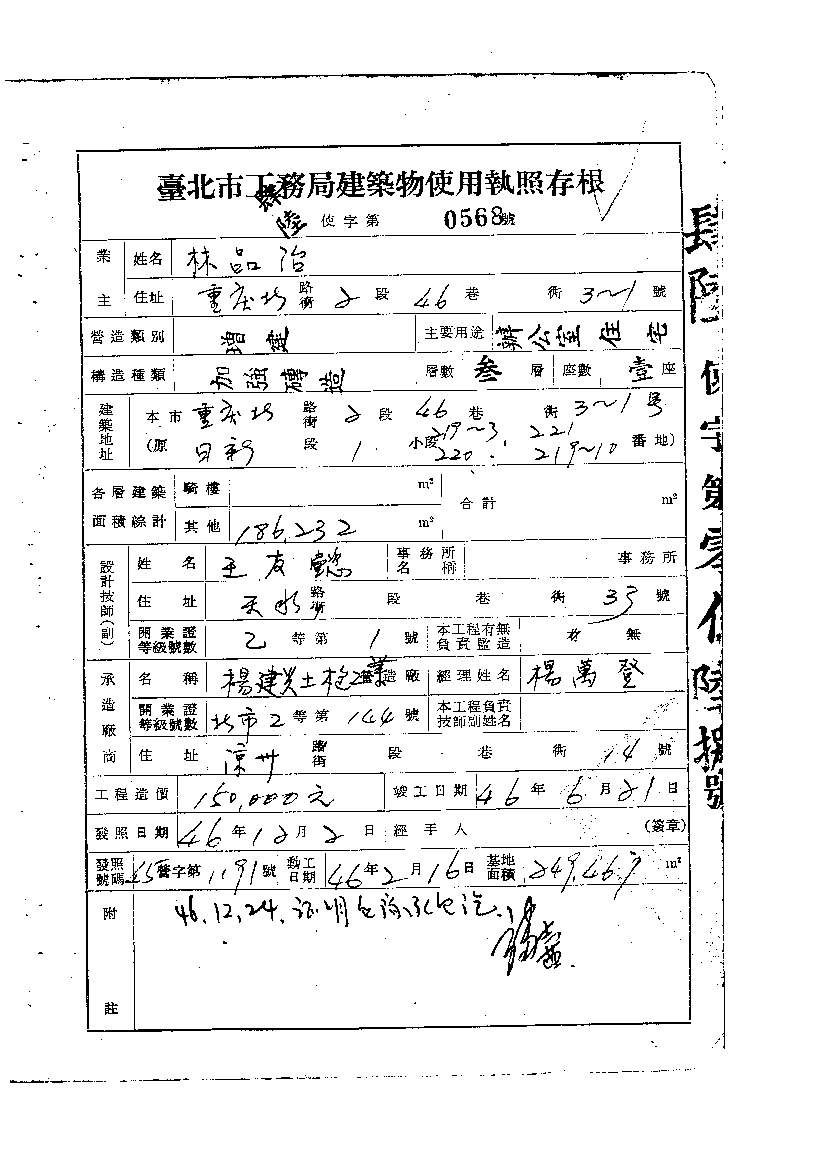 臺北市工務局建築物使用執照存根
肆陸 使字第 0568號
業主 姓名 林品治
住址 重庆北 路街 2 段 46 巷 衖 3~1 號
營造類別 增建 主要用途 辦公室住宅
構造種類 加強磚造 層數 叁 層 座數 壹 座
建築地址 本市 重庆北 路街 2 段 46 巷 衖 3~1号
(原 日新 段 1 小段 219~3 221 220 219~10 番地)
各層建築面積綜計 騎樓 m² 合計 m²
其他 186.232 m²
設計技師(副) 姓名 王友 事務所名稱 事務所
住址 天水 路街 段 巷 衖 33 號
開業證等級號數 乙 等第 1 號 本工程有無負責監造 有 無
承造廠商 名稱 楊建 土木包 營造廠 經理姓名 楊萬登
開業證等級號數 北市乙 等第 144 號 本工程負責技師副姓名
住址 涼州 路街 段 巷 衖 14 號
工程造價 150,000元 竣工日期 46 年 6 月 21 日
發照日期 46 年 12 月 2 日 經手人 (簽章)
發照號碼 45營字第 1191 號 動工日期 46 年 2 月 16 日 基地面積 249.469 m²
附註 46.12.24.
肆陸使字第零伍陸捌號